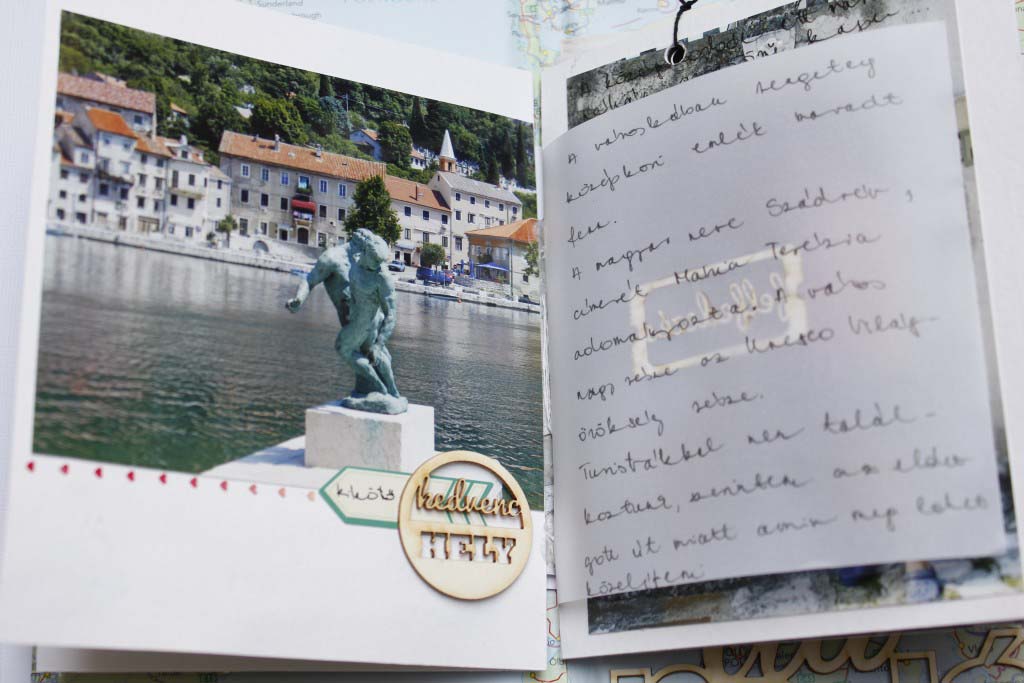 Sunderland
kikötő
kedvenc
HELY
A városkában rengeteg
középkori emlék maradt
fenn.
A magyar neve Szádrév,
címerét Mária Terézia
adományozta. A város
nagy része az Unesco Világ-
örökség része.
Turistákkal nem talál-
koztunk, szerintem az a
gott út miatt amin meg lehet
közelíteni